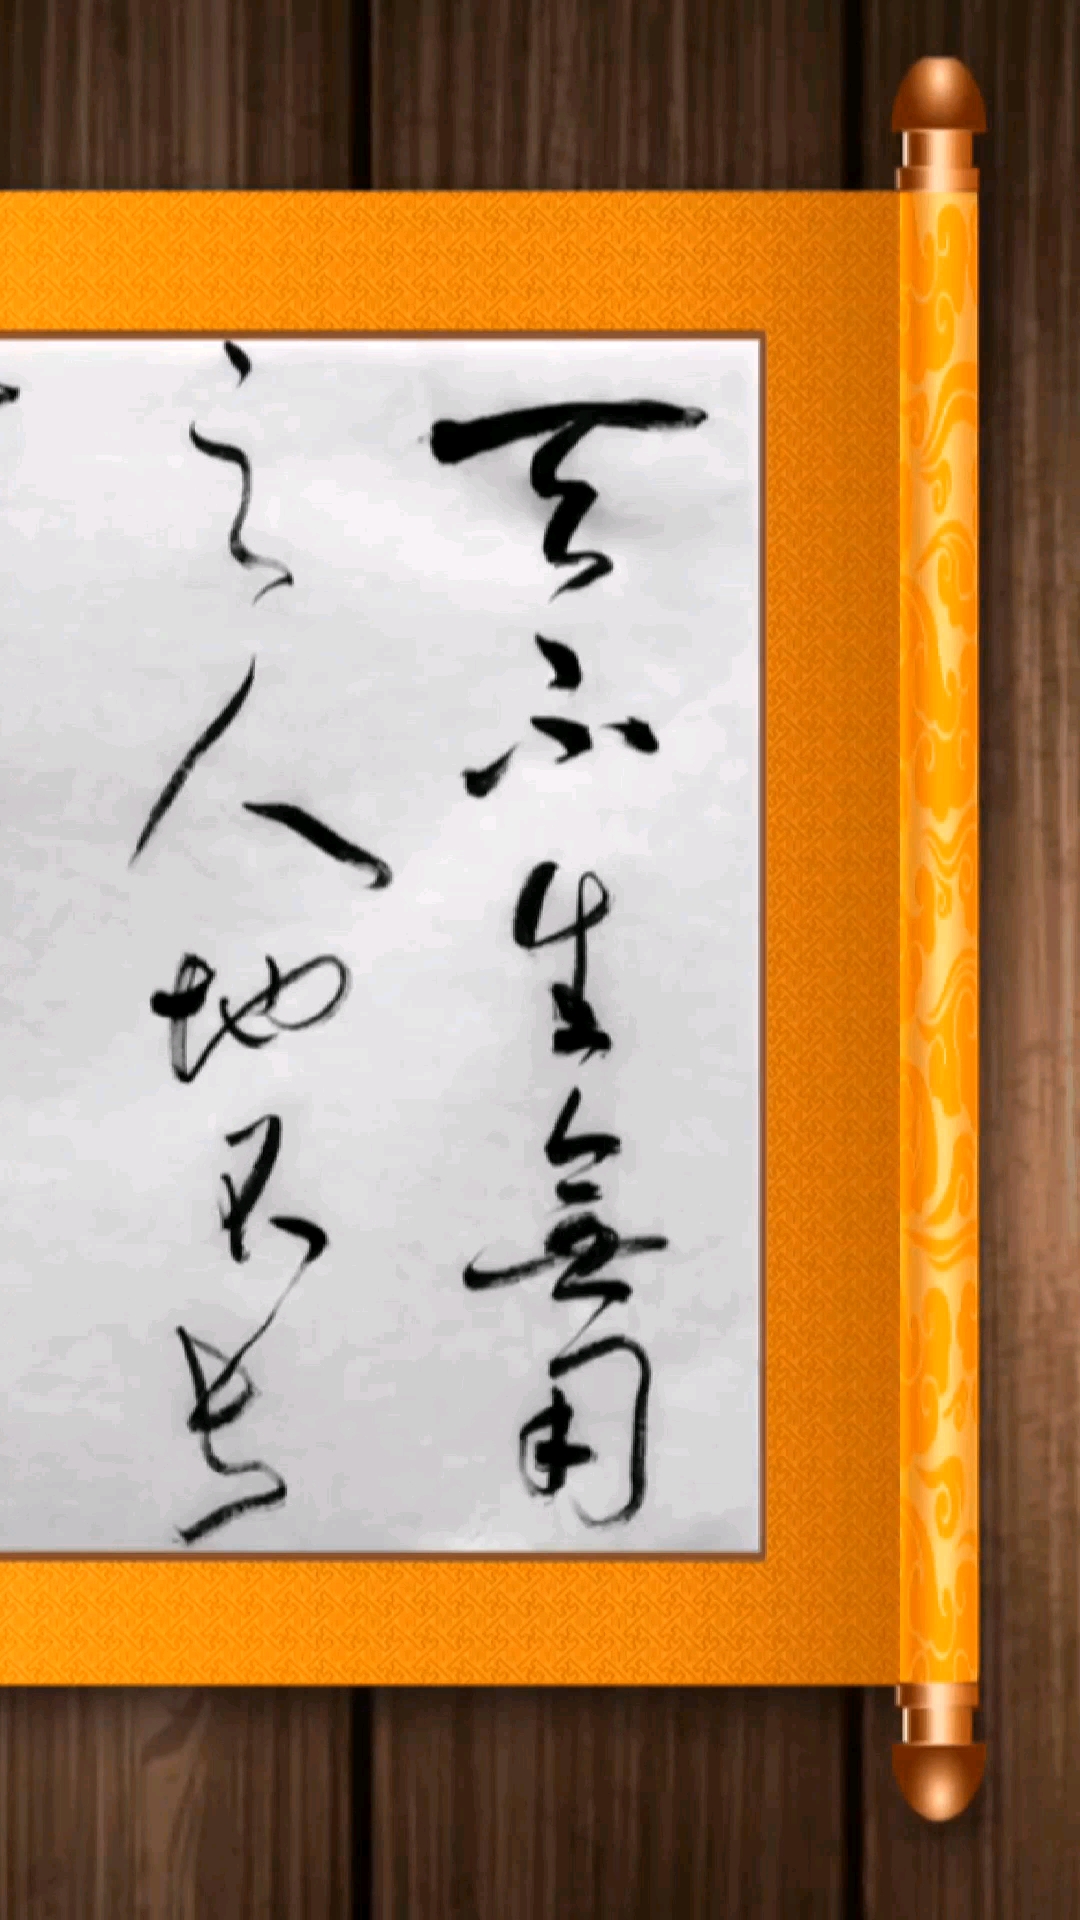 天不生無用
之人地不長